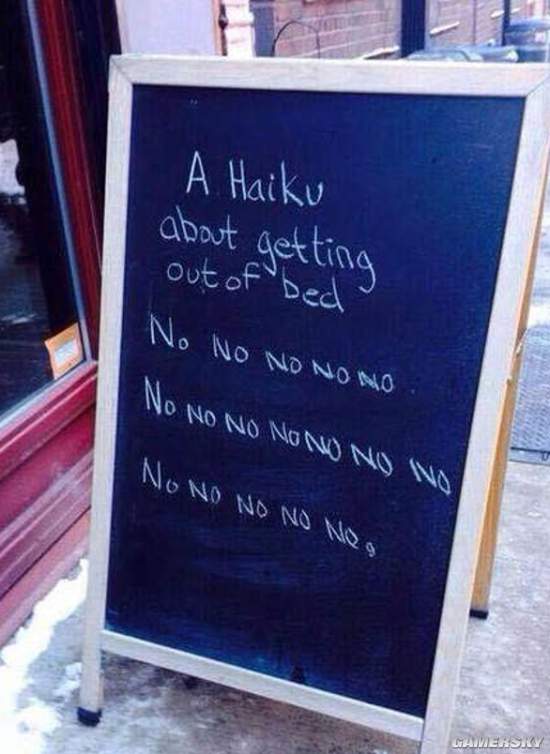 A Haiku
about getting
out of bed
No No No No No
No No No No No No No
No No No No No.
GAMERSKY